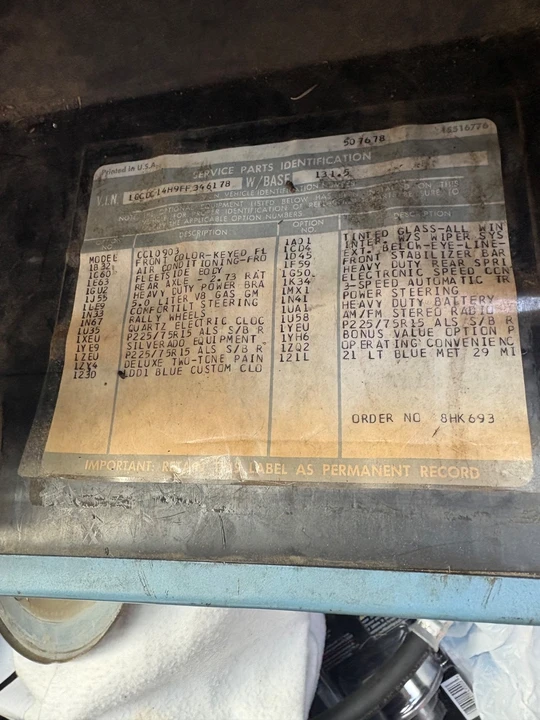 507678 16516776
Printed in U.S.A.
SERVICE PARTS IDENTIFICATION
V.I.N. W/BASE 131.5
VEHICLE IDENTIFICATION
OPTION NO. DESCRIPTION
DESCRIPTION
MODEL CC10903
1B32 FRONT COLOR-KEYED FL
1C60 AIR CONDITIONING-FRO
1E63 FLEETSIDE BODY
1GU2 REAR AXLE 2.73 RAT
1J55 HEAVY DUTY POWER BRA
1LE9 5.0 LITER V8 GAS GM
1N33 COMFORTILT STEERING
1N67 RALLY WHEELS
1U35 QUARTZ ELECTRIC CLOC
1XEU P225/75R15 ALS S/B R
1YE9 SILVERADO EQUIPMENT
1ZEU P225/75R15 ALS S/B R
1ZY4 DELUXE TWO-TONE PAIN
123D DDD1 BLUE CUSTOM CLO
1A01 TINTED GLASS-ALL WIN
1CD4 WIPER SYS
1D45 EXT. BELOW-EYE-LINE-
1F59 FRONT STABILIZER BAR
1G50 HEAVY DUTY REAR SPRI
1K34 ELECTRONIC SPEED CON
1MX1 3-SPEED AUTOMATIC TR
1N41 POWER STEERING
1UA1 HEAVY DUTY BATTERY
1U58 AM/FM STEREO RADIO
1YEU P225/75R15 ALS S/B R
1YH6 BONUS VALUE OPTION P
1ZQ2 OPERATING CONVENIENC
121L 21 LT BLUE MET 29 MI
ORDER NO 8HK693
IMPORTANT: RETAIN THIS LABEL AS PERMANENT RECORD